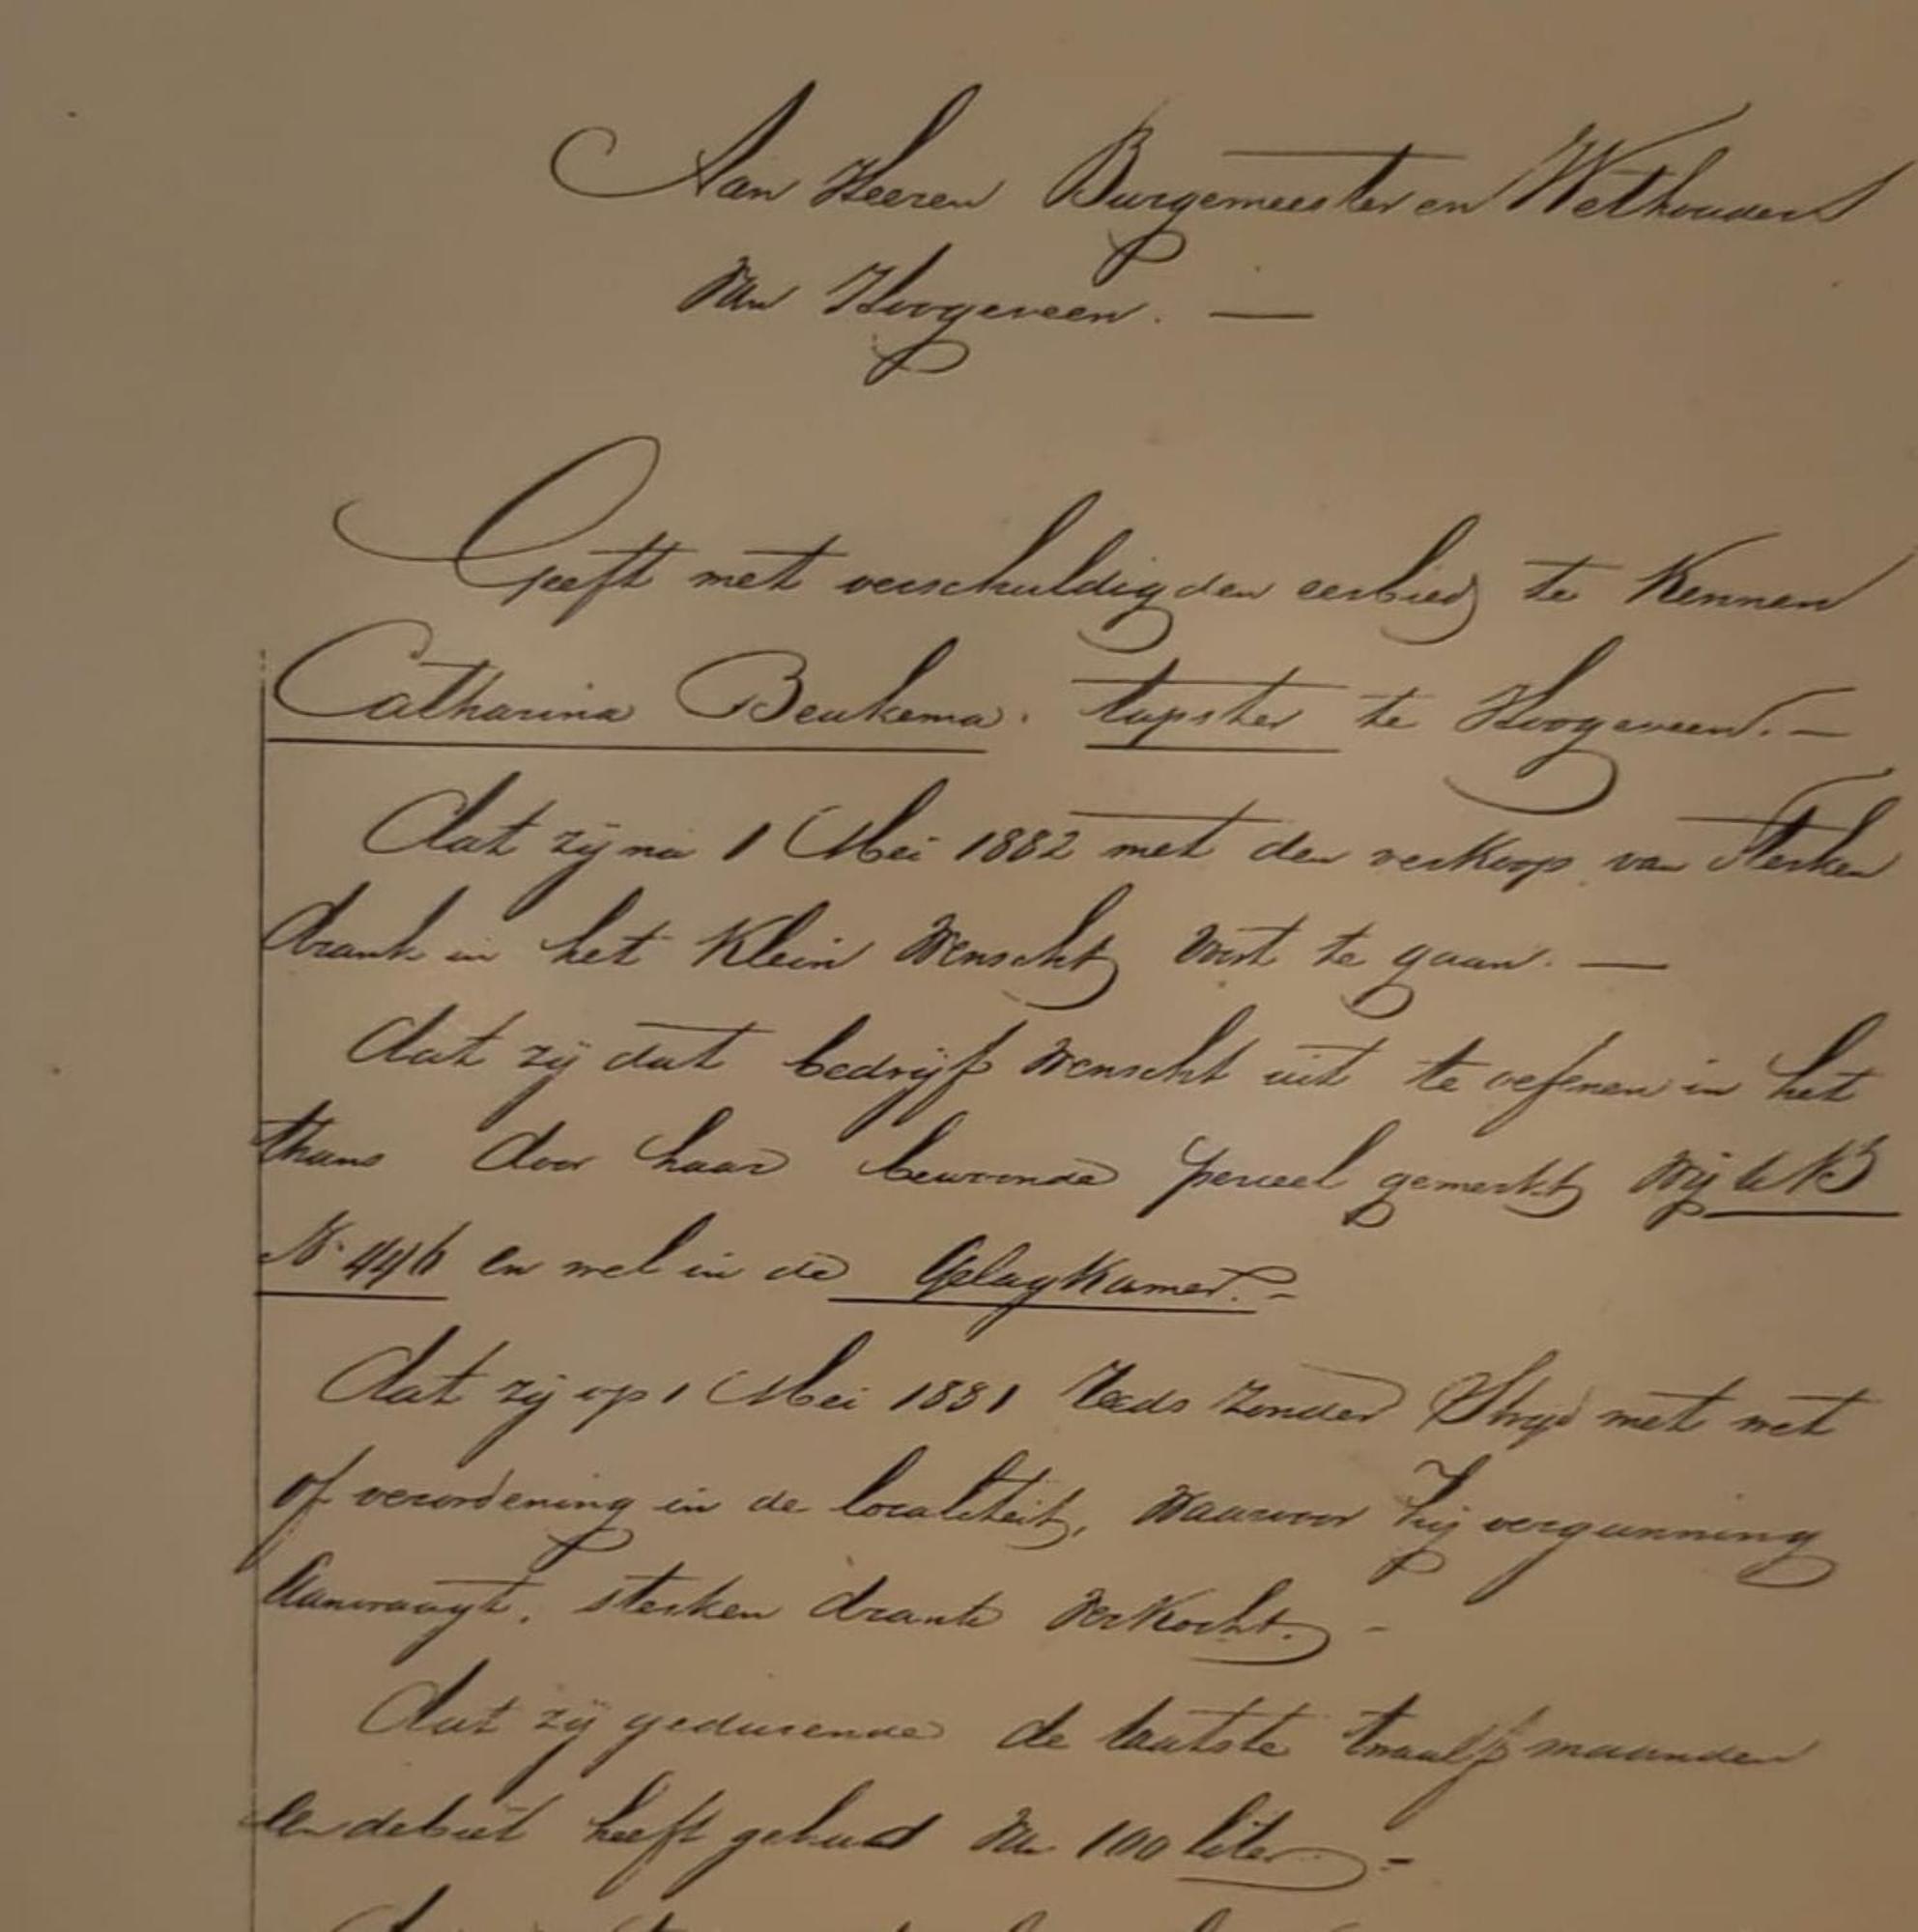 Aan Heeren Burgemeester en Wethouders
van Hoogeveen. —
Geeft met verschuldigden eerbied te kennen
Catharina Beukema. tapster te Hoogeveen. —
dat zij na 1 Mei 1882 met den verkoop van Sterken
drank in het Klein Wenscht voort te gaan. —
dat zij dat bedrijf Wenscht uit te oefenen in het
thans door haar bewoonde perceel gemerkt Wijk B
No 446 en wel in de Gelagkamer. —
dat zij op 1 Mei 1881 reeds zonder Strijd met wet
of verordening in de localiteit, waarvoor hij vergunning
aanvraagt, sterken drank verkocht. —
dat zij gedurende de laatste twaalf maanden
een debiet heeft gehad van 100 liter. =